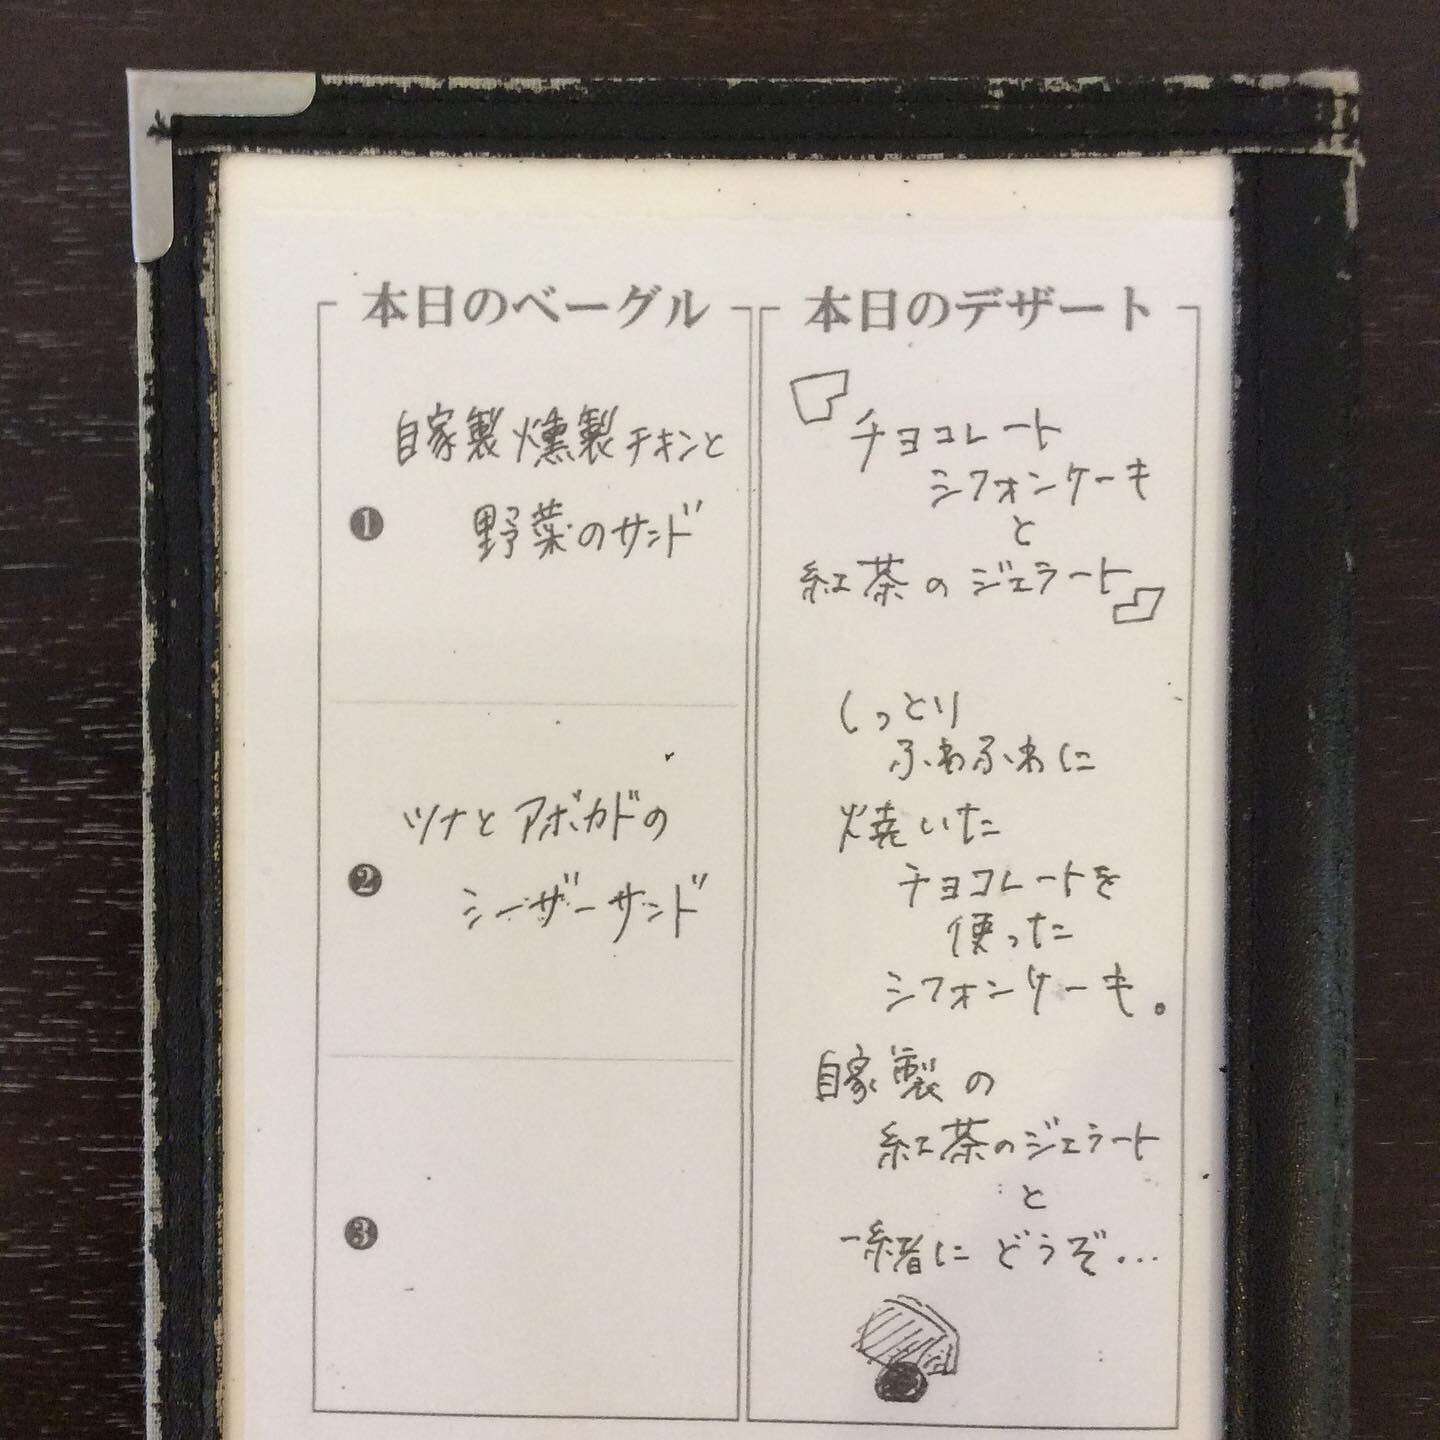 本日のベーグル
❶
自家製燻製チキンと
野菜のサンド
❷
ツナとアボカドの
シーザーサンド
❸
本日のデザート
『チョコレート
シフォンケーキ
と
紅茶のジェラート』
しっとり
ふわふわに
焼いた
チョコレートを
使った
シフォンケーキ。
自家製の
紅茶のジェラート
と
一緒に どうぞ...